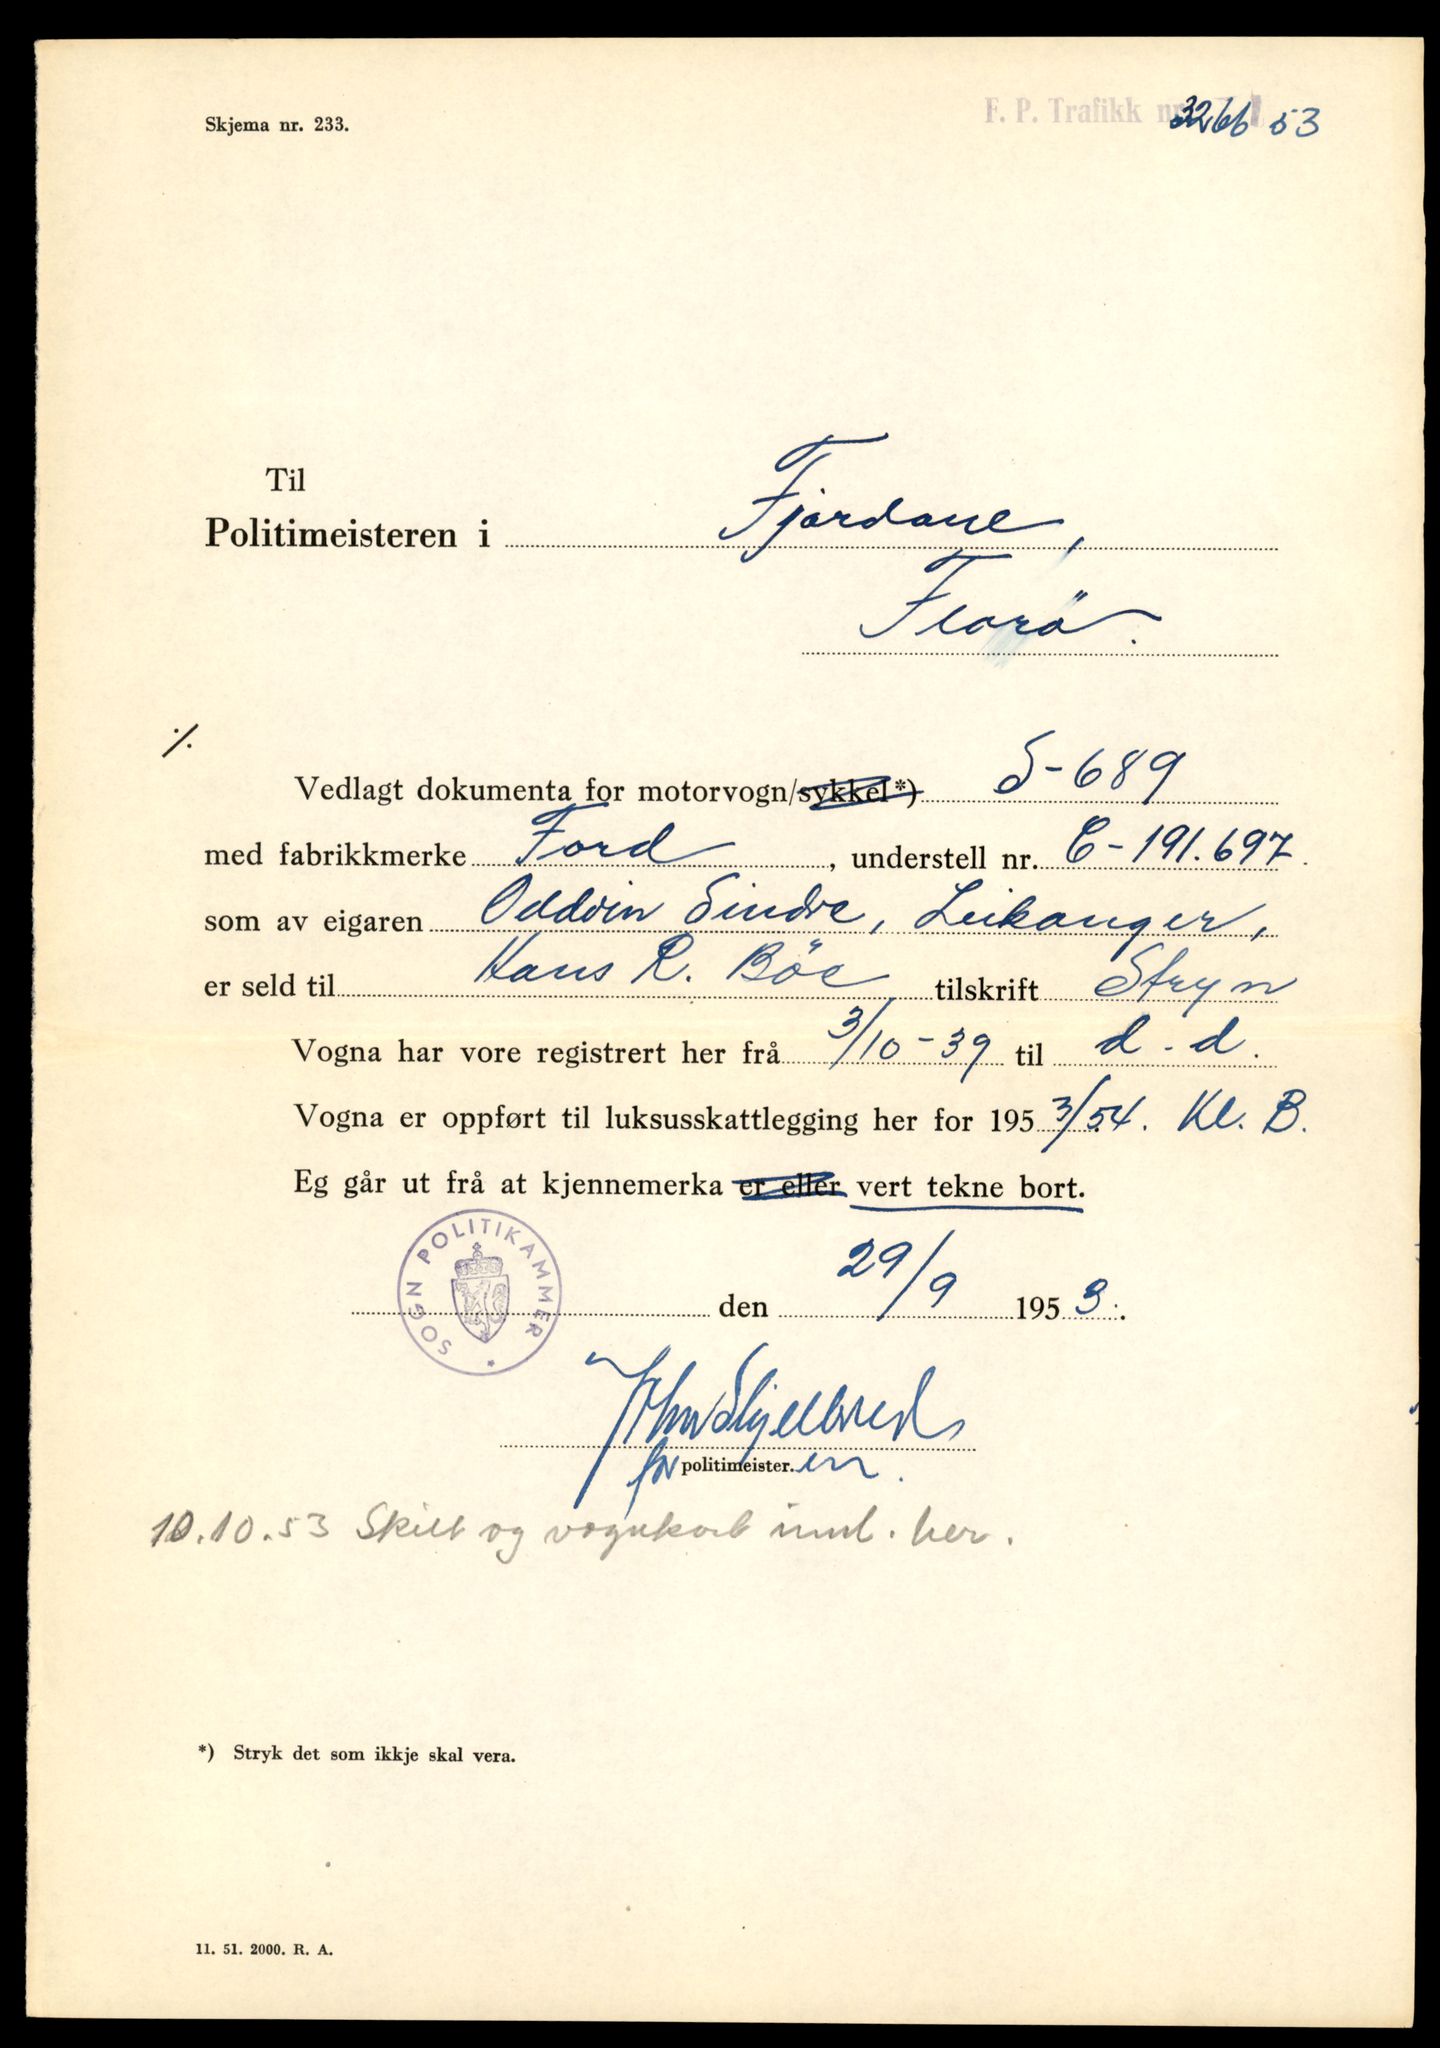 Skjema nr. 233.
F. P. Trafikk nr. 3266 53
Til
Politimeisteren i Fjordane,
Florö.
./.
Vedlagt dokumenta for motorvogn/sykkel*) S-689
med fabrikkmerke Ford, understell nr. C-191.697.
som av eigaren Oddvin Sindre, Leikanger,
er seld til Hans R. Böe tilskrift Stryn
Vogna har vore registrert her frå 3/10-39 til d.d.
Vogna er oppført til luksusskattlegging her for 1953/54. Kl. B.
Eg går ut frå at kjennemerka er eller vert tekne bort.
SOGN POLITIKAMMER *
den 29/9 1953.
John Skjelbred
for politimeister.en.
10.10.53 Skilt og vognkort innl. her.
*) Stryk det som ikkje skal vera.
11. 51. 2000. R. A.